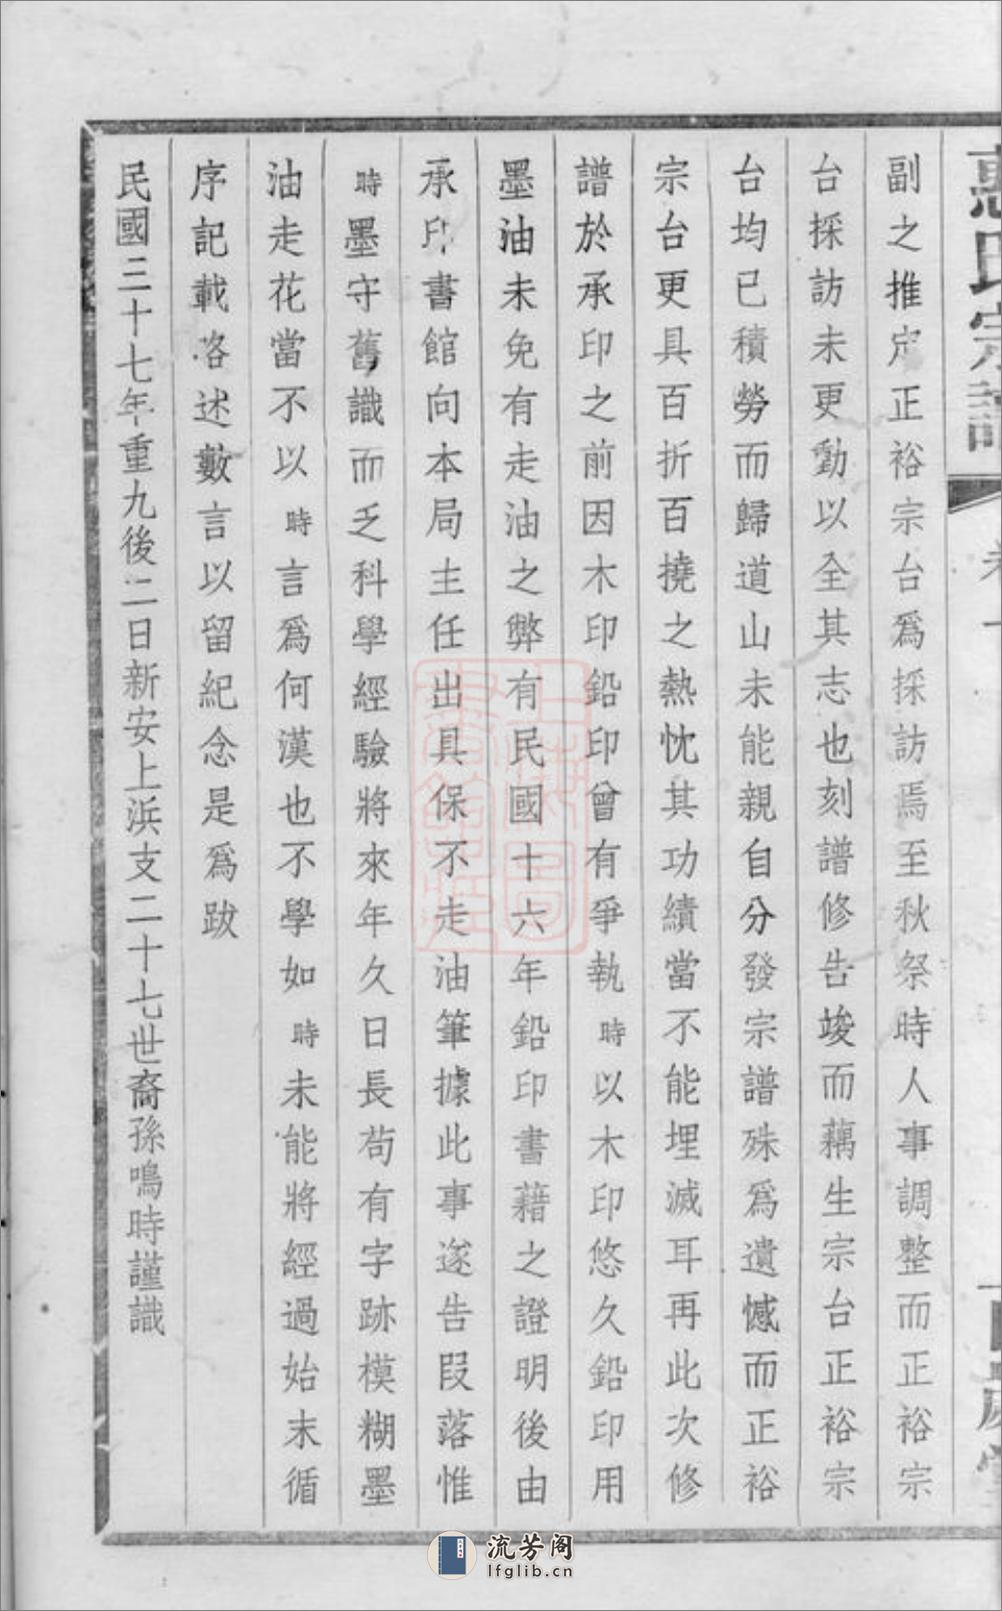 惠氏宗譜
卷一
副之推定正裕宗台爲採訪焉至秋祭時人事調整而正裕宗
台採訪未更動以全其志也刻譜修告竣而藕生宗台正裕宗
台均已積勞而歸道山未能親自分發宗譜殊爲遺憾而正裕
宗台更具百折百撓之熱忱其功績當不能埋滅耳再此次修
譜於承印之前因木印鉛印曾有爭執時以木印悠久鉛印用
墨油未免有走油之弊有民國十六年鉛印書藉之證明後由
承印書館向本局主任出具保不走油筆據此事遂告段落惟
時墨守舊識而乏科學經驗將來年久日長苟有字跡模糊墨
油走花當不以時言爲何漢也不學如時未能將經過始末循
序記載咯述數言以留紀念是爲跋
民國三十七年重九後二日新安上浜支二十七世裔孫鳴時謹識
流芳阁
lfglib.cn